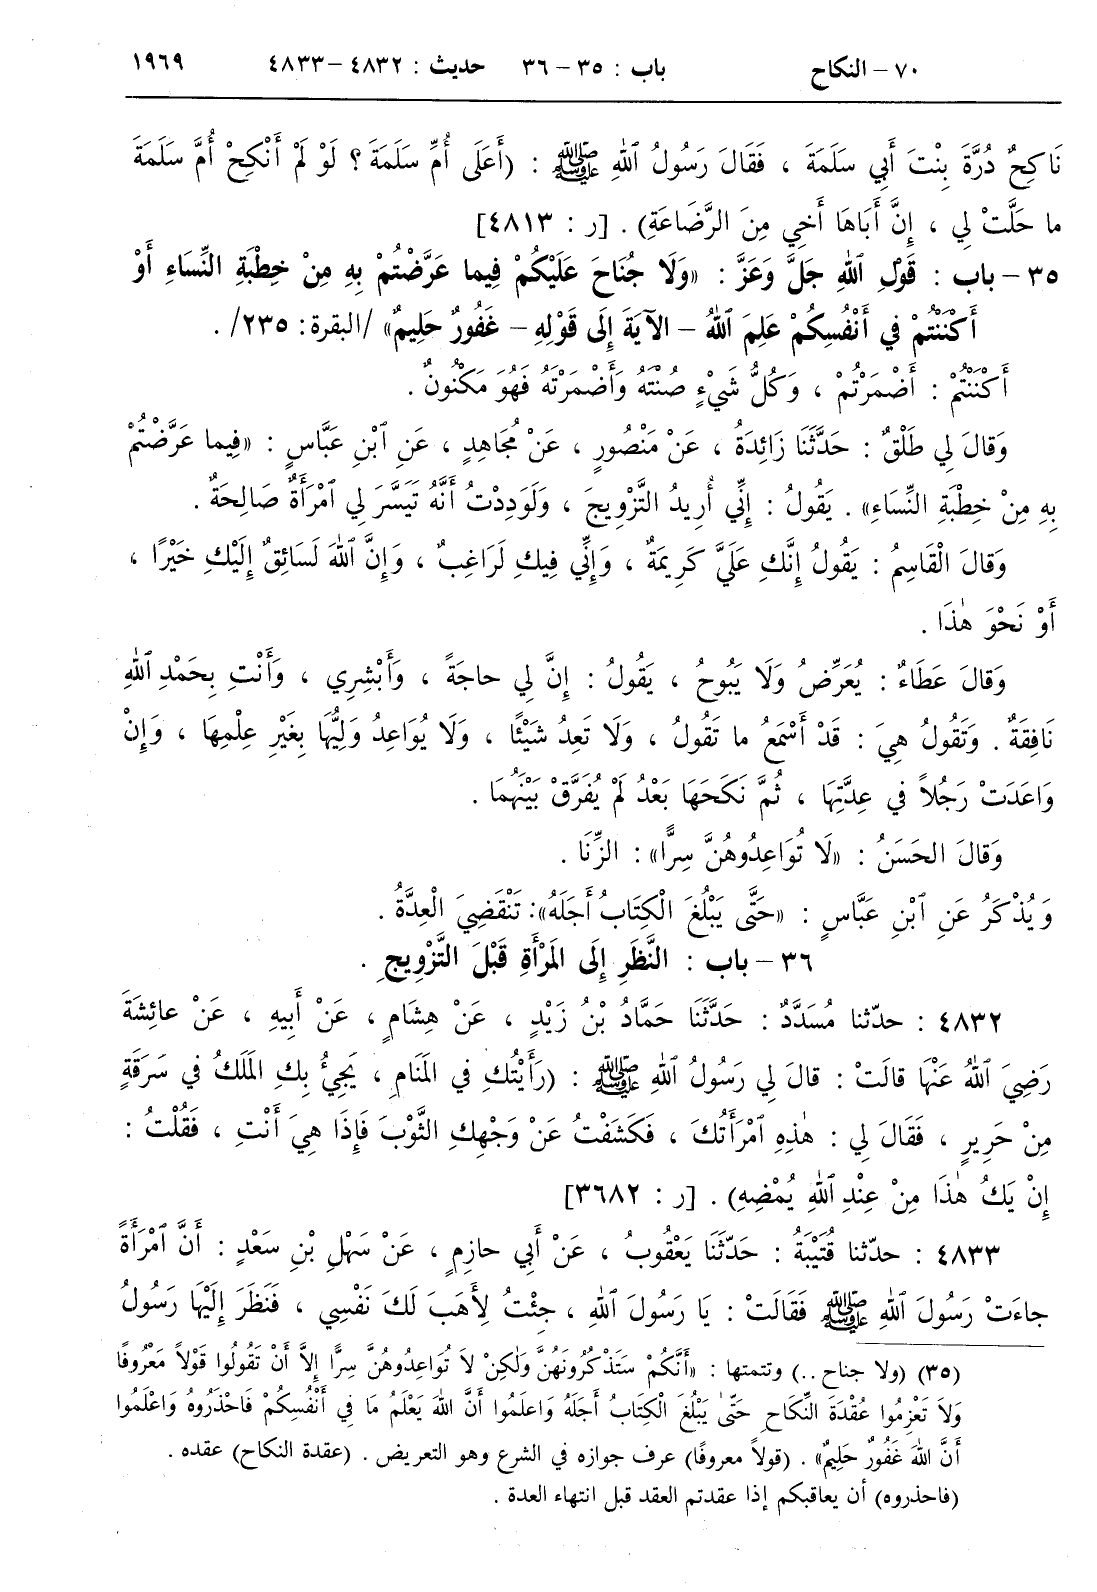 ٧٠ – النكاح باب : ٣٥ – ٣٦ حديث : ٤٨٣٢ –٤٨٣٣ ١٩٦٩
نَاكِحٌ دُرَّةَ بِنْتَ أَبِي سَلَمَةَ ، فَقَالَ رَسُولُ ٱللهِ ﷺ : (أَعَلَى أُمِّ سَلَمَةَ ؟ لَوْ لَمْ أَنْكِحْ أُمَّ سَلَمَةَ
ما حَلَّتْ لِي ، إِنَّ أَبَاهَا أَخِي مِنَ الرَّضَاعَةِ) . [ر : ٤٨١٣]
٣٥ – باب : قَوْلِ ٱللهِ جَلَّ وَعَزَّ : «وَلَا جُنَاحَ عَلَيْكُمْ فِيما عَرَّضْتُمْ بِهِ مِنْ خِطْبَةِ النِّسَاءِ أَوْ
أَكْنَنْتُمْ فِي أَنْفُسِكُمْ عَلِمَ ٱللهُ – الآيَةَ إِلَى قَوْلِهِ – غَفُورٌ حَلِيمٌ» /البقرة: ٢٣٥/ .
أَكْنَنْتُمْ : أَضْمَرْتُمْ ، وَكُلُّ شَيْءٍ صُنْتَهُ وَأَضْمَرْتَهُ فَهُوَ مَكْنُونٌ .
وَقالَ لِي طَلْقٌ : حَدَّثَنَا زَائِدَةُ ، عَنْ مَنْصُورٍ ، عَنْ مُجَاهِدٍ ، عَنِ ٱبْنِ عَبَّاسٍ : «فِيما عَرَّضْتُمْ
بِهِ مِنْ خِطْبَةِ النِّسَاءِ» . يَقُولُ : إِنِّي أُرِيدُ التَّزْوِيجَ ، وَلَوَدِدْتُ أَنَّهُ تَيَسَّرَ لِي ٱمْرَأَةٌ صَالِحَةٌ .
وَقالَ الْقَاسِمُ : يَقُولُ إِنَّكِ عَلَيَّ كَرِيمَةٌ ، وَإِنِّي فِيكِ لَرَاغِبٌ ، وَإِنَّ ٱللهَ لَسَائِقٌ إِلَيْكِ خَيْرًا ،
أَوْ نَحْوَ هٰذَا .
وَقالَ عَطَاءٌ : يُعَرِّضُ وَلَا يَبُوحُ ، يَقُولُ : إِنَّ لِي حاجَةً ، وَأَبْشِرِي ، وَأَنْتِ بِحَمْدِ ٱللهِ
نَافِقَةٌ . وَتَقُولُ هِيَ : قَدْ أَسْمَعُ ما تَقُولُ ، وَلَا تَعِدُ شَيْئًا ، وَلَا يُوَاعِدُ وَلِيُّهَا بِغَيْرِ عِلْمِهَا ، وَإِنْ
وَاعَدَتْ رَجُلاً فِي عِدَّتِهَا ، ثُمَّ نَكَحَهَا بَعْدُ لَمْ يُفَرَّقْ بَيْنَهُمَا .
وَقالَ الحَسَنُ : «لَا تُوَاعِدُوهُنَّ سِرًّا» : الزِّنَا .
وَيُذْكَرُ عَنِ ٱبْنِ عَبَّاسٍ : «حَتَّى يَبْلُغَ الْكِتَابُ أَجَلَهُ»: تَنْقَضِيَ الْعِدَّةُ .
٣٦ – باب : النَّظَرِ إِلَى المَرْأَةِ قَبْلَ التَّزْوِيجِ .
٤٨٣٢ : حدّثنا مُسَدَّدٌ : حَدَّثَنَا حَمَّادُ بْنُ زَيْدٍ ، عَنْ هِشَامٍ ، عَنْ أَبِيهِ ، عَنْ عائِشَةَ
رَضِيَ ٱللهُ عَنْهَا قالَتْ : قالَ لِي رَسُولُ ٱللهِ ﷺ : (رَأَيْتُكِ فِي المَنَامِ ، يَجِيءُ بِكِ المَلَكُ فِي سَرَقَةٍ
مِنْ حَرِيرٍ ، فَقَالَ لِي : هٰذِهِ ٱمْرَأَتُكَ ، فَكَشَفْتُ عَنْ وَجْهِكِ الثَّوْبَ فَإِذَا هِيَ أَنْتِ ، فَقُلْتُ :
إِنْ يَكُ هٰذَا مِنْ عِنْدِ ٱللهِ يُمْضِهِ) . [ر : ٣٦٨٢]
٤٨٣٣ : حدّثنا قُتَيْبَةُ : حَدَّثَنَا يَعْقُوبُ ، عَنْ أَبِي حازِمٍ ، عَنْ سَهْلِ بْنِ سَعْدٍ : أَنَّ ٱمْرَأَةً
جاءَتْ رَسُولَ ٱللهِ ﷺ فَقَالَتْ : يَا رَسُولَ ٱللهِ ، جِئْتُ لِأَهَبَ لَكَ نَفْسِي ، فَنَظَرَ إِلَيْهَا رَسُولُ
(٣٥) (ولا جناح ..) وتتمتها : «أَنَّكُمْ سَتَذْكُرُونَهُنَّ وَلٰكِنْ لاَ تُوَاعِدُوهُنَّ سِرًّا إِلاَّ أَنْ تَقُولُوا قَوْلاً مَعْرُوفًا
وَلاَ تَعْزِمُوا عُقْدَةَ النِّكَاحِ حَتّىٰ يَبْلُغَ الْكِتَابُ أَجَلَهُ وَاعْلَمُوا أَنَّ اللهَ يَعْلَمُ مَا فِي أَنْفُسِكُمْ فَاحْذَرُوهُ وَاعْلَمُوا
أَنَّ اللهَ غَفُورٌ حَلِيمٌ» . (قولاً معروفًا) عرف جوازه في الشرع وهو التعريض . (عقدة النكاح) عقده .
(فاحذروه) أن يعاقبكم إذا عقدتم العقد قبل انتهاء العدة .